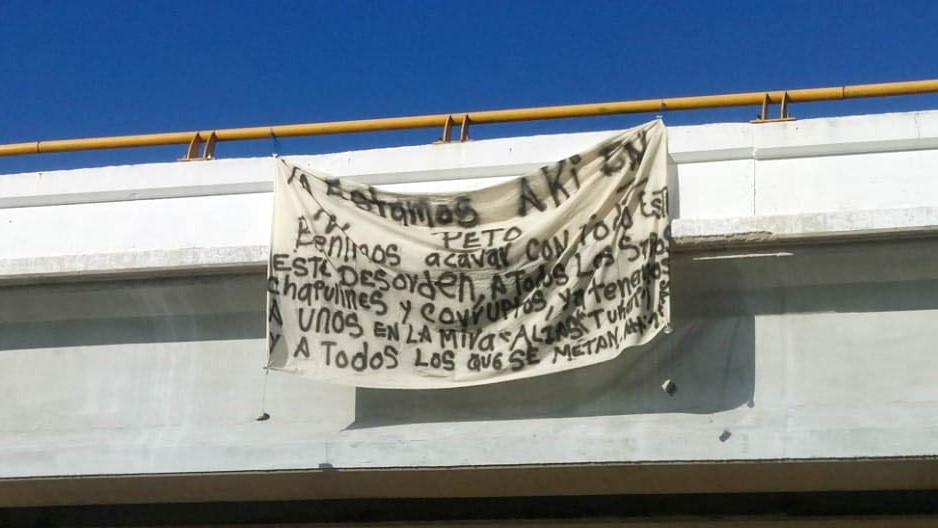 Ya Estamos AKí EN
PETO
Benimos acavar con todo
ESTE DESorden, A Todos Los
chapulines y corruptos, ya tenemos
A UNOS EN LA Mira "ALIAS"
Y A Todos LOS QUE SE METAN.